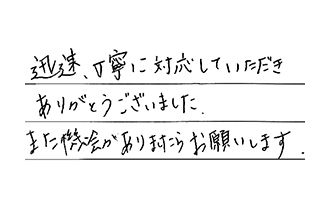 迅速、丁寧に対応していただき
ありがとうございました.
また機会がありましたらお願いします.